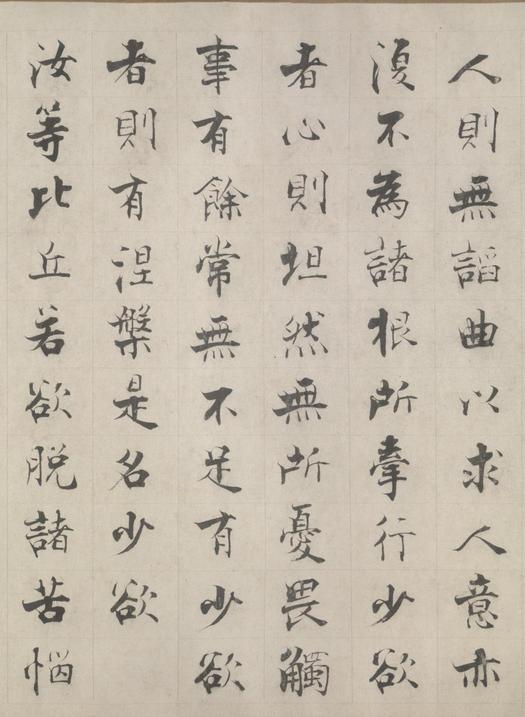 人則無謟曲以求人意亦
復不為諸根所牽行少欲
者心則坦然無所憂畏觸
事有餘常無不足有少欲
者則有涅槃是名少欲
汝等比丘若欲脫諸苦惱